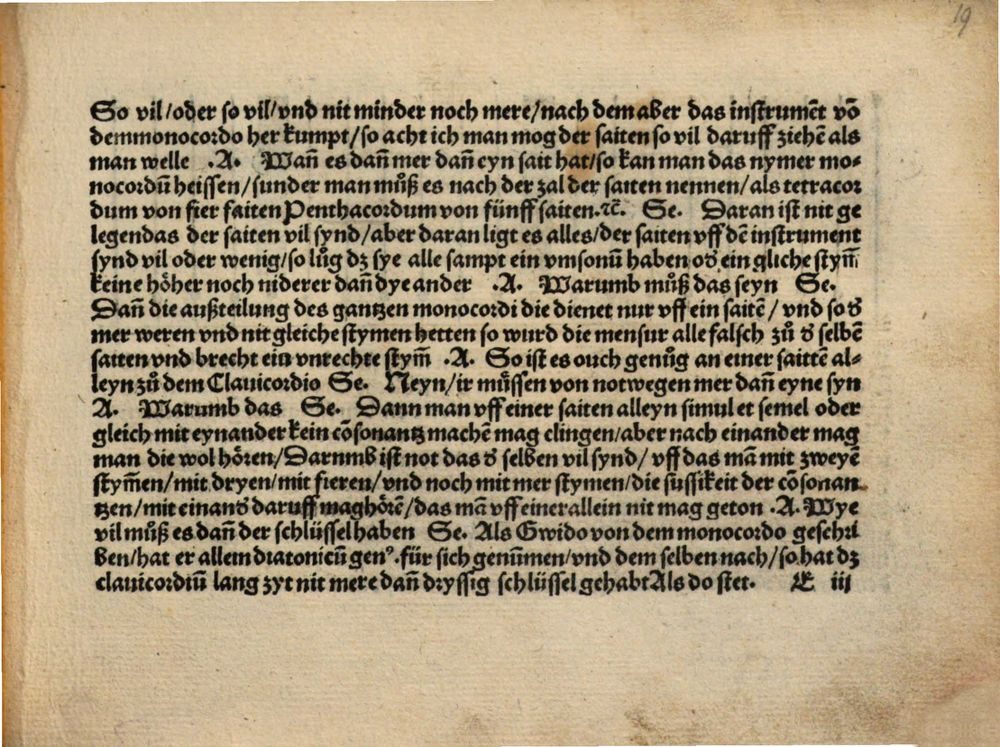 19
So vil/oder so vil/vnd nit minder noch mere/nach dem aber das instrumēt vō
demmonocordo her kumpt/so acht ich man mog der saiten so vil daruff ziehē als
man welle .A. Wañ es dañ mer dañ eyn sait hat/so kan man das nymer mo-
nocordū heissen/sunder man můß es nach der zal der saiten nennen/als tetracor
dum von fier saiten Penthacordum von fünff saiten.⁊c̄. Se. Daran ist nit ge
legendas der saiten vil synd/aber daran ligt es alles/der saiten vff dē instrument
synd vil oder wenig/so lůg dz sye alle sampt ein vmsonū haben oð ein gliche stym̄
keine höher noch niderer dañ dye ander .A. Warumb můß das seyn Se.
Dañ die außteilung des gantzen monocordi die dienet nur vff ein saitē/ vnd so ð
mer weren vnd nit gleiche stymen hetten so wurd die mensur alle falsch zů ð selbē
saiten vnd brecht ein vnrechte stym̄ .A. So ist es ouch genůg an einer saittē al-
leyn zů dem Clauicordio Se. Neyn/ir můssen von notwegen mer dañ eyne syn
A. Warumb das Se. Dann man vff einer saiten alleyn simul et semel oder
gleich mit eynander kein cōsonantz machē mag clingen/aber nach einander mag
man die wol hören/Darnmb ist not das ð selben vil synd/ vff das mā mit zweyē
stym̄en/mit dryen/mit fieren/vnd noch mit mer stymen/die sussikeit der cōsonan
tzen/mit einanð daruff maghörē/das mā vff einer allein nit mag geton .A. Wye
vil můß es dañ der schlüssel haben Se. Als Gwido von dem monocordo geschri
ben/hat er allem diatonicū genꝰ.für sich genūmen/vnd dem selben nach/so hat dz
clauicordiū lang zyt nit mere dañ dryssig schlüssel gehabt Als do stet. E iii